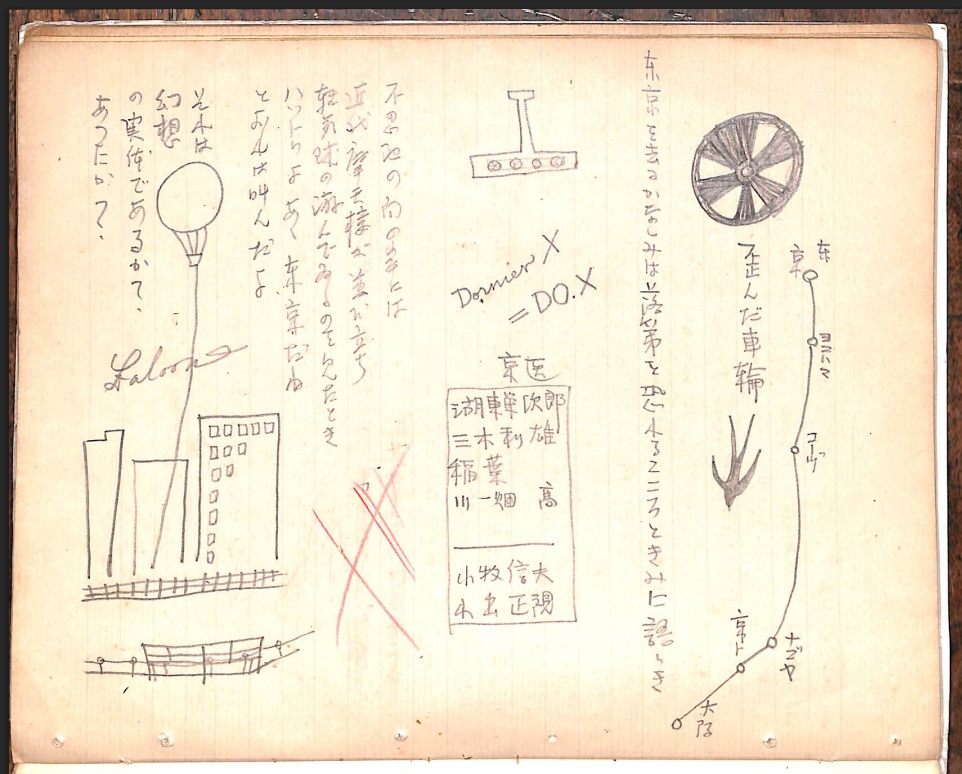 東京
ヨコハマ
コーヅ
ナゴヤ
京ト
大阪
歪んだ車輪
东京を去るかなしみは落第を恐れるこころときみに語りき
Dornier X
= DO.X
京医
湖東栄次郎
三木利雄
稲葉
川畑 高
小牧信夫
不思議の向のまには
近代摩天楼が並び立ち
軽気球の游んでゐるのをみたとき
ハットりよ あゝ 東京だね
とおれは叫んだよ
それは
幻想
の実体であるかて、
あつたかて、